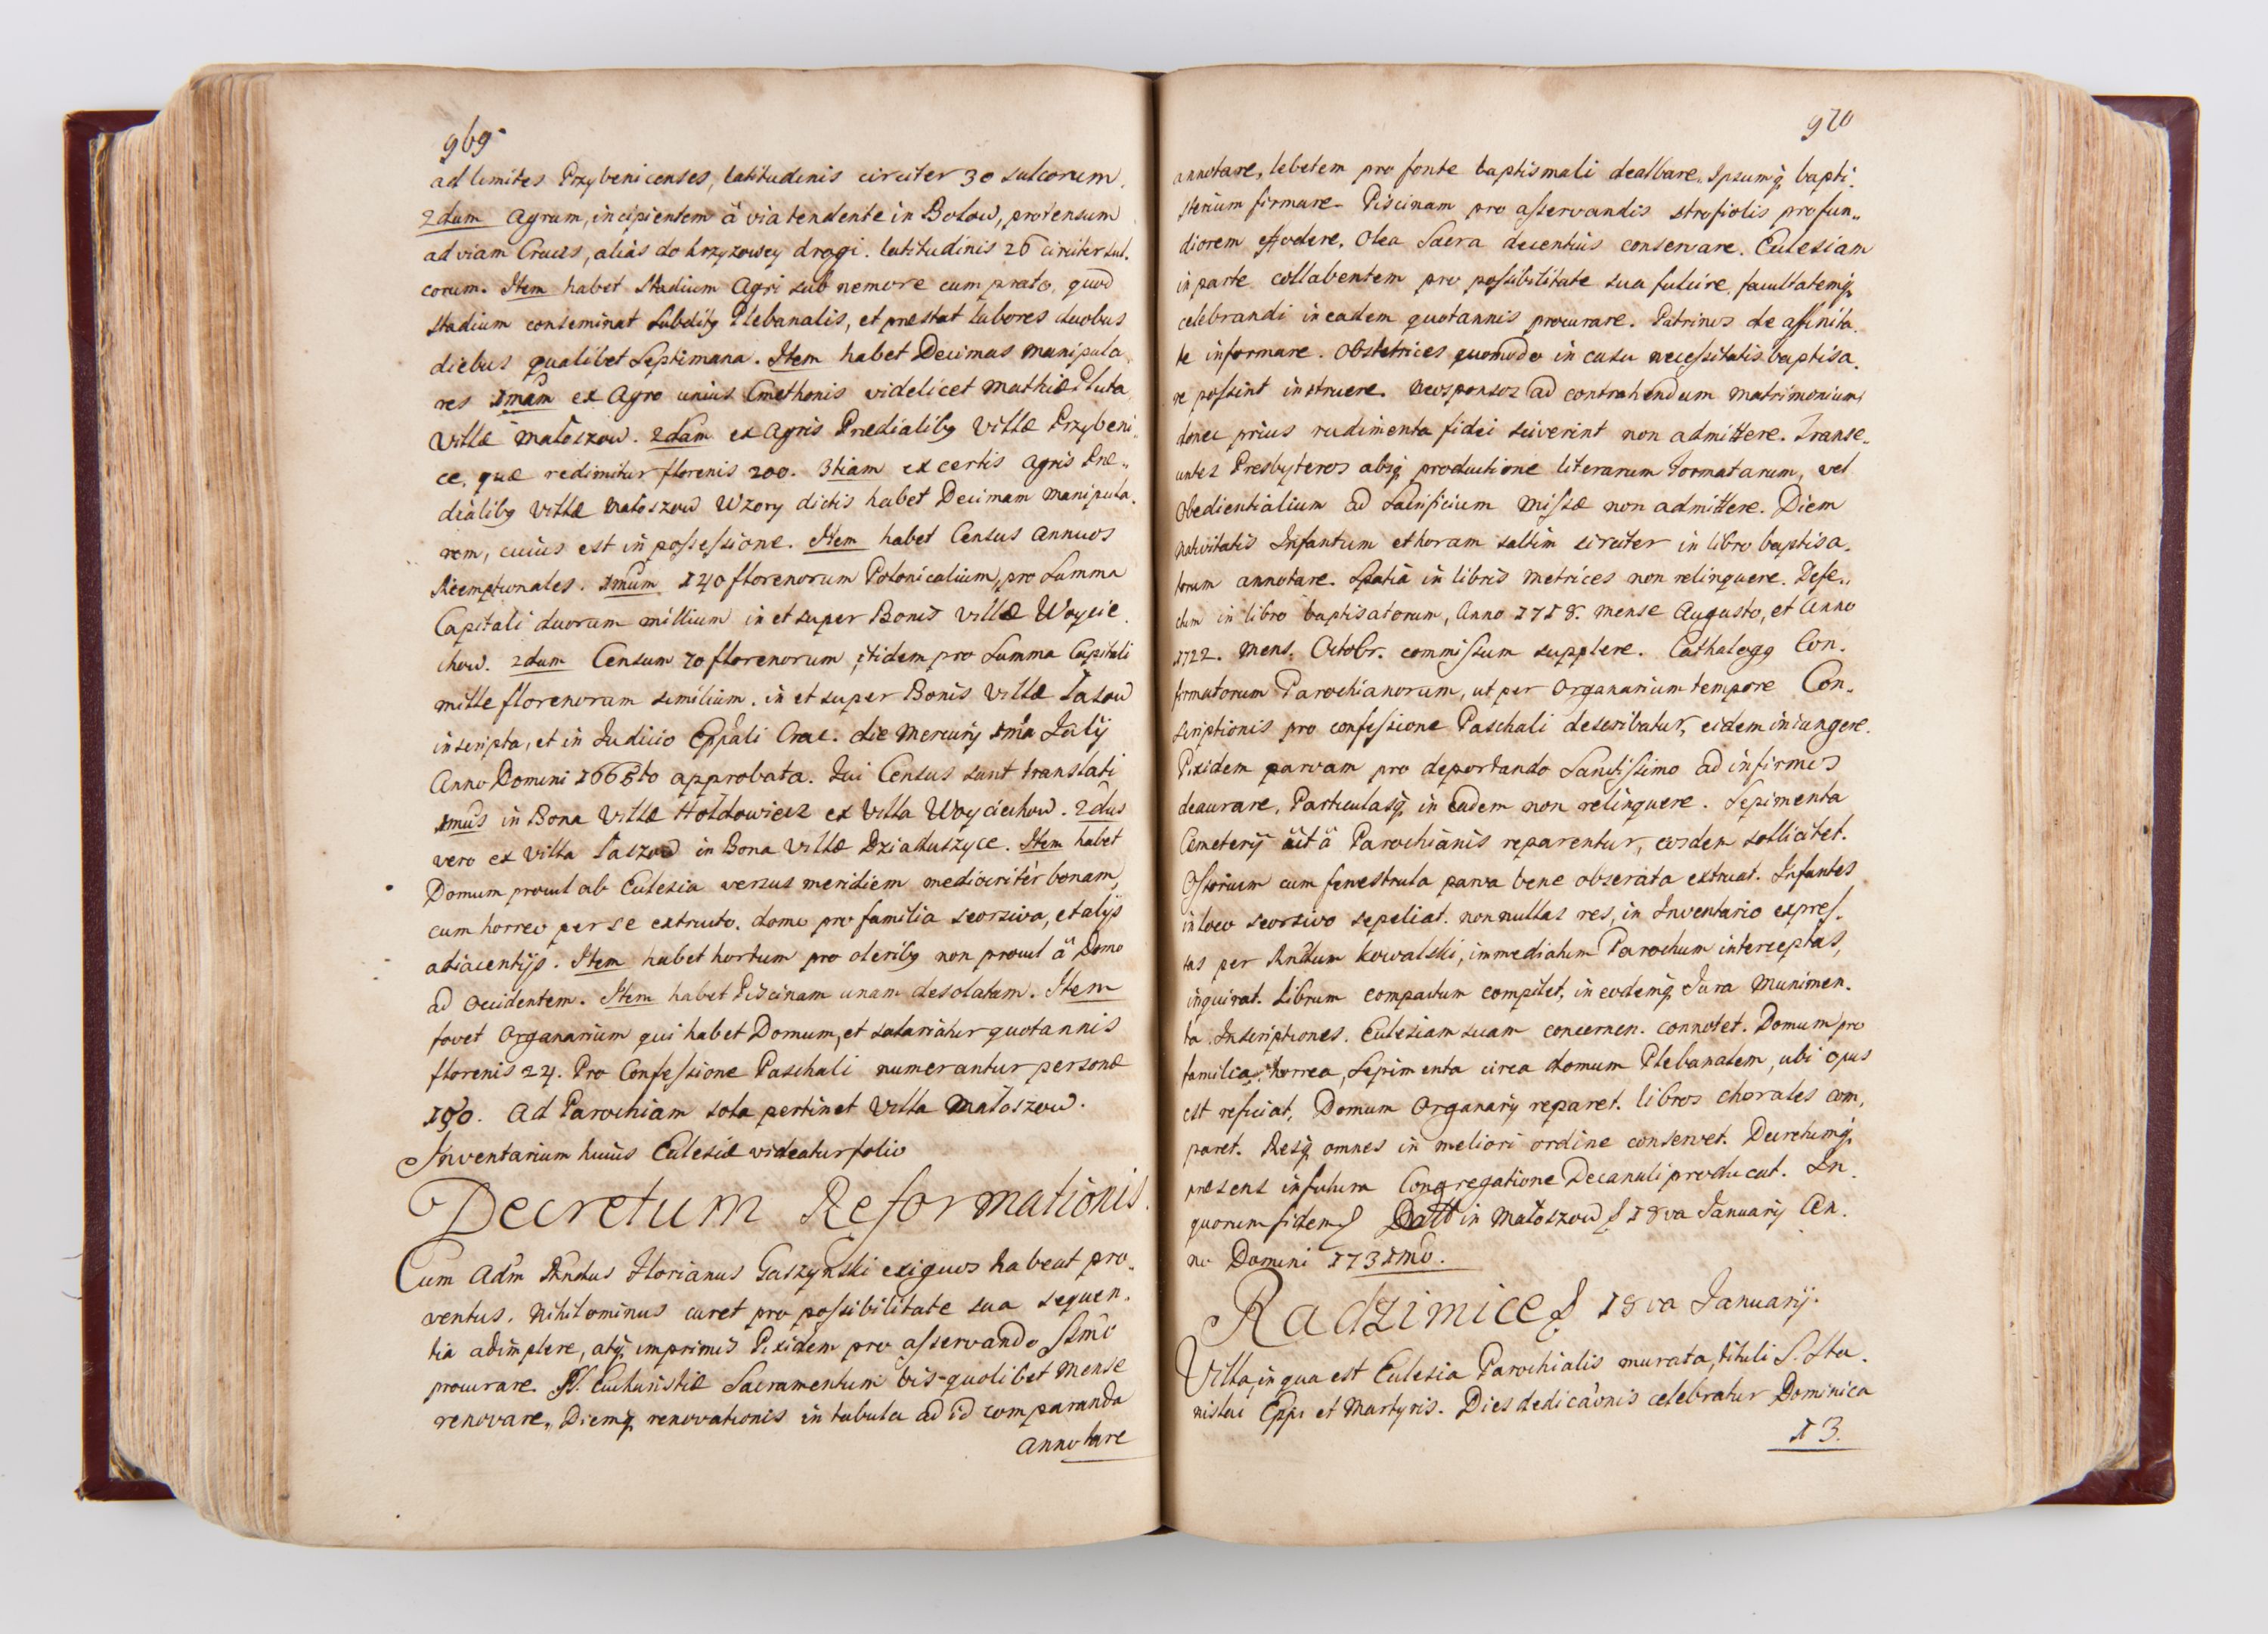 969
ad limites Przybenicenses, latitudinis circiter 30 sulcorum.
2dum Agrum, incipientem à via tendente in Bolow, protensum
ad viam Crucis, aliàs do krzyzowey drogi. latitudinis 26 circiter sul.
corum. Item habet Stadium Agri sub nemore cum prato, quod
stadium conseminat Subditq Plebanalis, et præstat labores duobus
diebus qualibet Septimana. Item habet Decimas manipula.
res 1mam ex Agro unius Cmethonis videlicet Mathiæ Pluta
Villæ Małoszow. 2dam ex Agris Prædialibq Villæ Przybeni.
ce, quæ redimitur florenis 200. 3tiam ex certis Agris Præ..
dialibq Villæ Małoszow Wzory dictis habet Decimam manipula.
rem, cuius est in possessione. Item habet Census annuos
Reemptionales. 1mum 140 florenorum Polonicalium, pro Summa
Capitali duorum millium in et super Bonis Villæ Woycie.
chow. 2dum Censum 70 florenorum, itidem pro Summa Capitali
mille florenorum similium, in et super Bonis Villæ Łasow
inscripta, et in Judicio Eppali Crac. die Mercurij 1ma Julij
Anno Domini 1668to approbata. Qui Census sunt translati
1mus in Bona Villæ Hołdowiec ex Villa Woyciechow. 2dus
vero ex Villa Łaszow in Bona Villæ Dziaduszyce. Item habet
Domum procul ab Eclesia versus meridiem mediocriter bonam,
cum horreo per se extructo, domo pro familia seorsiva, et alijs
adiacentijs. Item habet hortum pro oleribq non procul à Domo
ad Occidentem. Item habet Piscinam unam desolatam. Item
fovet Organarium qui habet Domum, et salariatur quotannis
florenis 24. Pro Confessione Paschali numerantur personæ
190. Ad Parochiam sola pertinet Villa Małoszow.
Inventarium huius Eclesiæ videatur folio
Decretum Reformationis.
Cum Adm Rndus Florianus Gaszynski exiguos habeat pro..
ventus. Nihilominus curet pro possibilitate sua sequen.
tia adimplere, atq imprimis Pixidem pro asservando SSmo
procurare. SS. Eucharistiæ Sacramentum bis quolibet Mense
renovare, Diemq renovationis in tabula ad id comparanda
annotare
970
annotare, lebetem pro fonte baptismali dealbare, Ipsumq bapti.
sterium firmare. Piscinam pro asservandis strofiolis profun..
diorem effodere. Olea Sacra decentius conservare. Eclesiam
in parte collabentem pro possibilitate sua fulcire, facultatemq
celebrandi in eadem quotannis procurare. Patrinos de affinita.
te informare. Obstetrices quomodo in casu necessitatis baptisa.
re possint instruere. Neosponsos ad contrahendum matrimonium,
donec prius rudimenta fidei sciverint non admittere. Transe..
untes Presbyteros absq productione literarum formatarum, vel
Obedientialium ad Sacrificium Missæ non admittere. Diem
nativitatis Infantum et horam saltim circiter in libro baptisa.
torum annotare. Spatia in libris Metrices non relinquere. Defe..
ctum in libro baptisatorum, Anno 1718. mense Augusto, et Anno
1722. Mens. Octobr. commissum supplere. Cathalogq Con.
firmatorum Parochianorum, ut per Organarium tempore Con..
scriptionis pro confessione Paschali describatur, eidem iniungere.
Pixidem parvam pro deportando Sanctissimo ad infirmos
deaurare, Particulasq in Eadem non relinquere. Sepimenta
Cæmeterij ut à Parochianis reparentur, eosdem sollicitet.
Ossorium cum fenestrula parva bene obserata extruat. Infantes
in loco seorsivo sepeliat. nonnullas res, in Inventario expres.
sas per Rndum Kowalski, immediatum Parochum interceptas,
inquirat. Librum compactum compilet, in eodemq Iura Munimen.
ta. Inscriptiones. Eclesiam suam concernen. connotet. Domum pro
familia, horrea, Sepimenta circa domum Plebanalem, ubi opus
est reficiat, Domum Organarij reparet. libros chorales com,
paret. Resq omnes in meliori ordine conservet. Decretumq
præsens in futura Congregatione Decanali producat. In.
quorum fidem Datt in Małoszow d 18va Januarij An.
no Domini 1731mo.
Radzimice d 18va Januarij.
Villa, in qua est Eclesia Parochialis murata, tituli S. Sta.
nislai Eppi et Martyris. Dies dedicaonis celebratur Dominica
13.